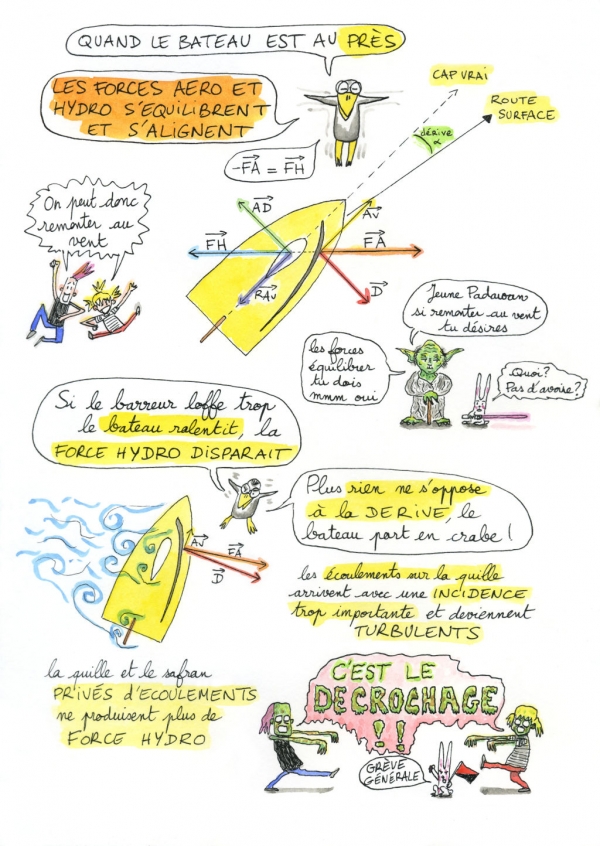 QUAND LE BATEAU EST AU PRÈS
LES FORCES AERO ET
HYDRO S'EQUILIBRENT
ET S'ALIGNENT
-FA = FH
CAP VRAI
ROUTE
SURFACE
dérive
α
On peut donc
remonter au
vent
AD
AV
FH
FA
RAV
D
Jeune Padawan
si remonter au vent
tu désires
les forces
équilibrer
tu dois
mmm oui
Quoi?
Pas d'avoise?
Si le barreur loffe trop
le bateau ralentit, la
FORCE HYDRO DISPARAIT
Plus rien ne s'oppose
à la DERIVE, le
bateau part en crabe!
AV
FA
D
les écoulements sur la quille
arrivent avec une INCIDENCE
trop importante et deviennent
TURBULENTS
la quille et le safran
PRIVÉS D'ECOULEMENTS
ne produisent plus de
FORCE HYDRO
C'EST LE
DECROCHAGE
!!
GRÈVE
GÉNÉRALE